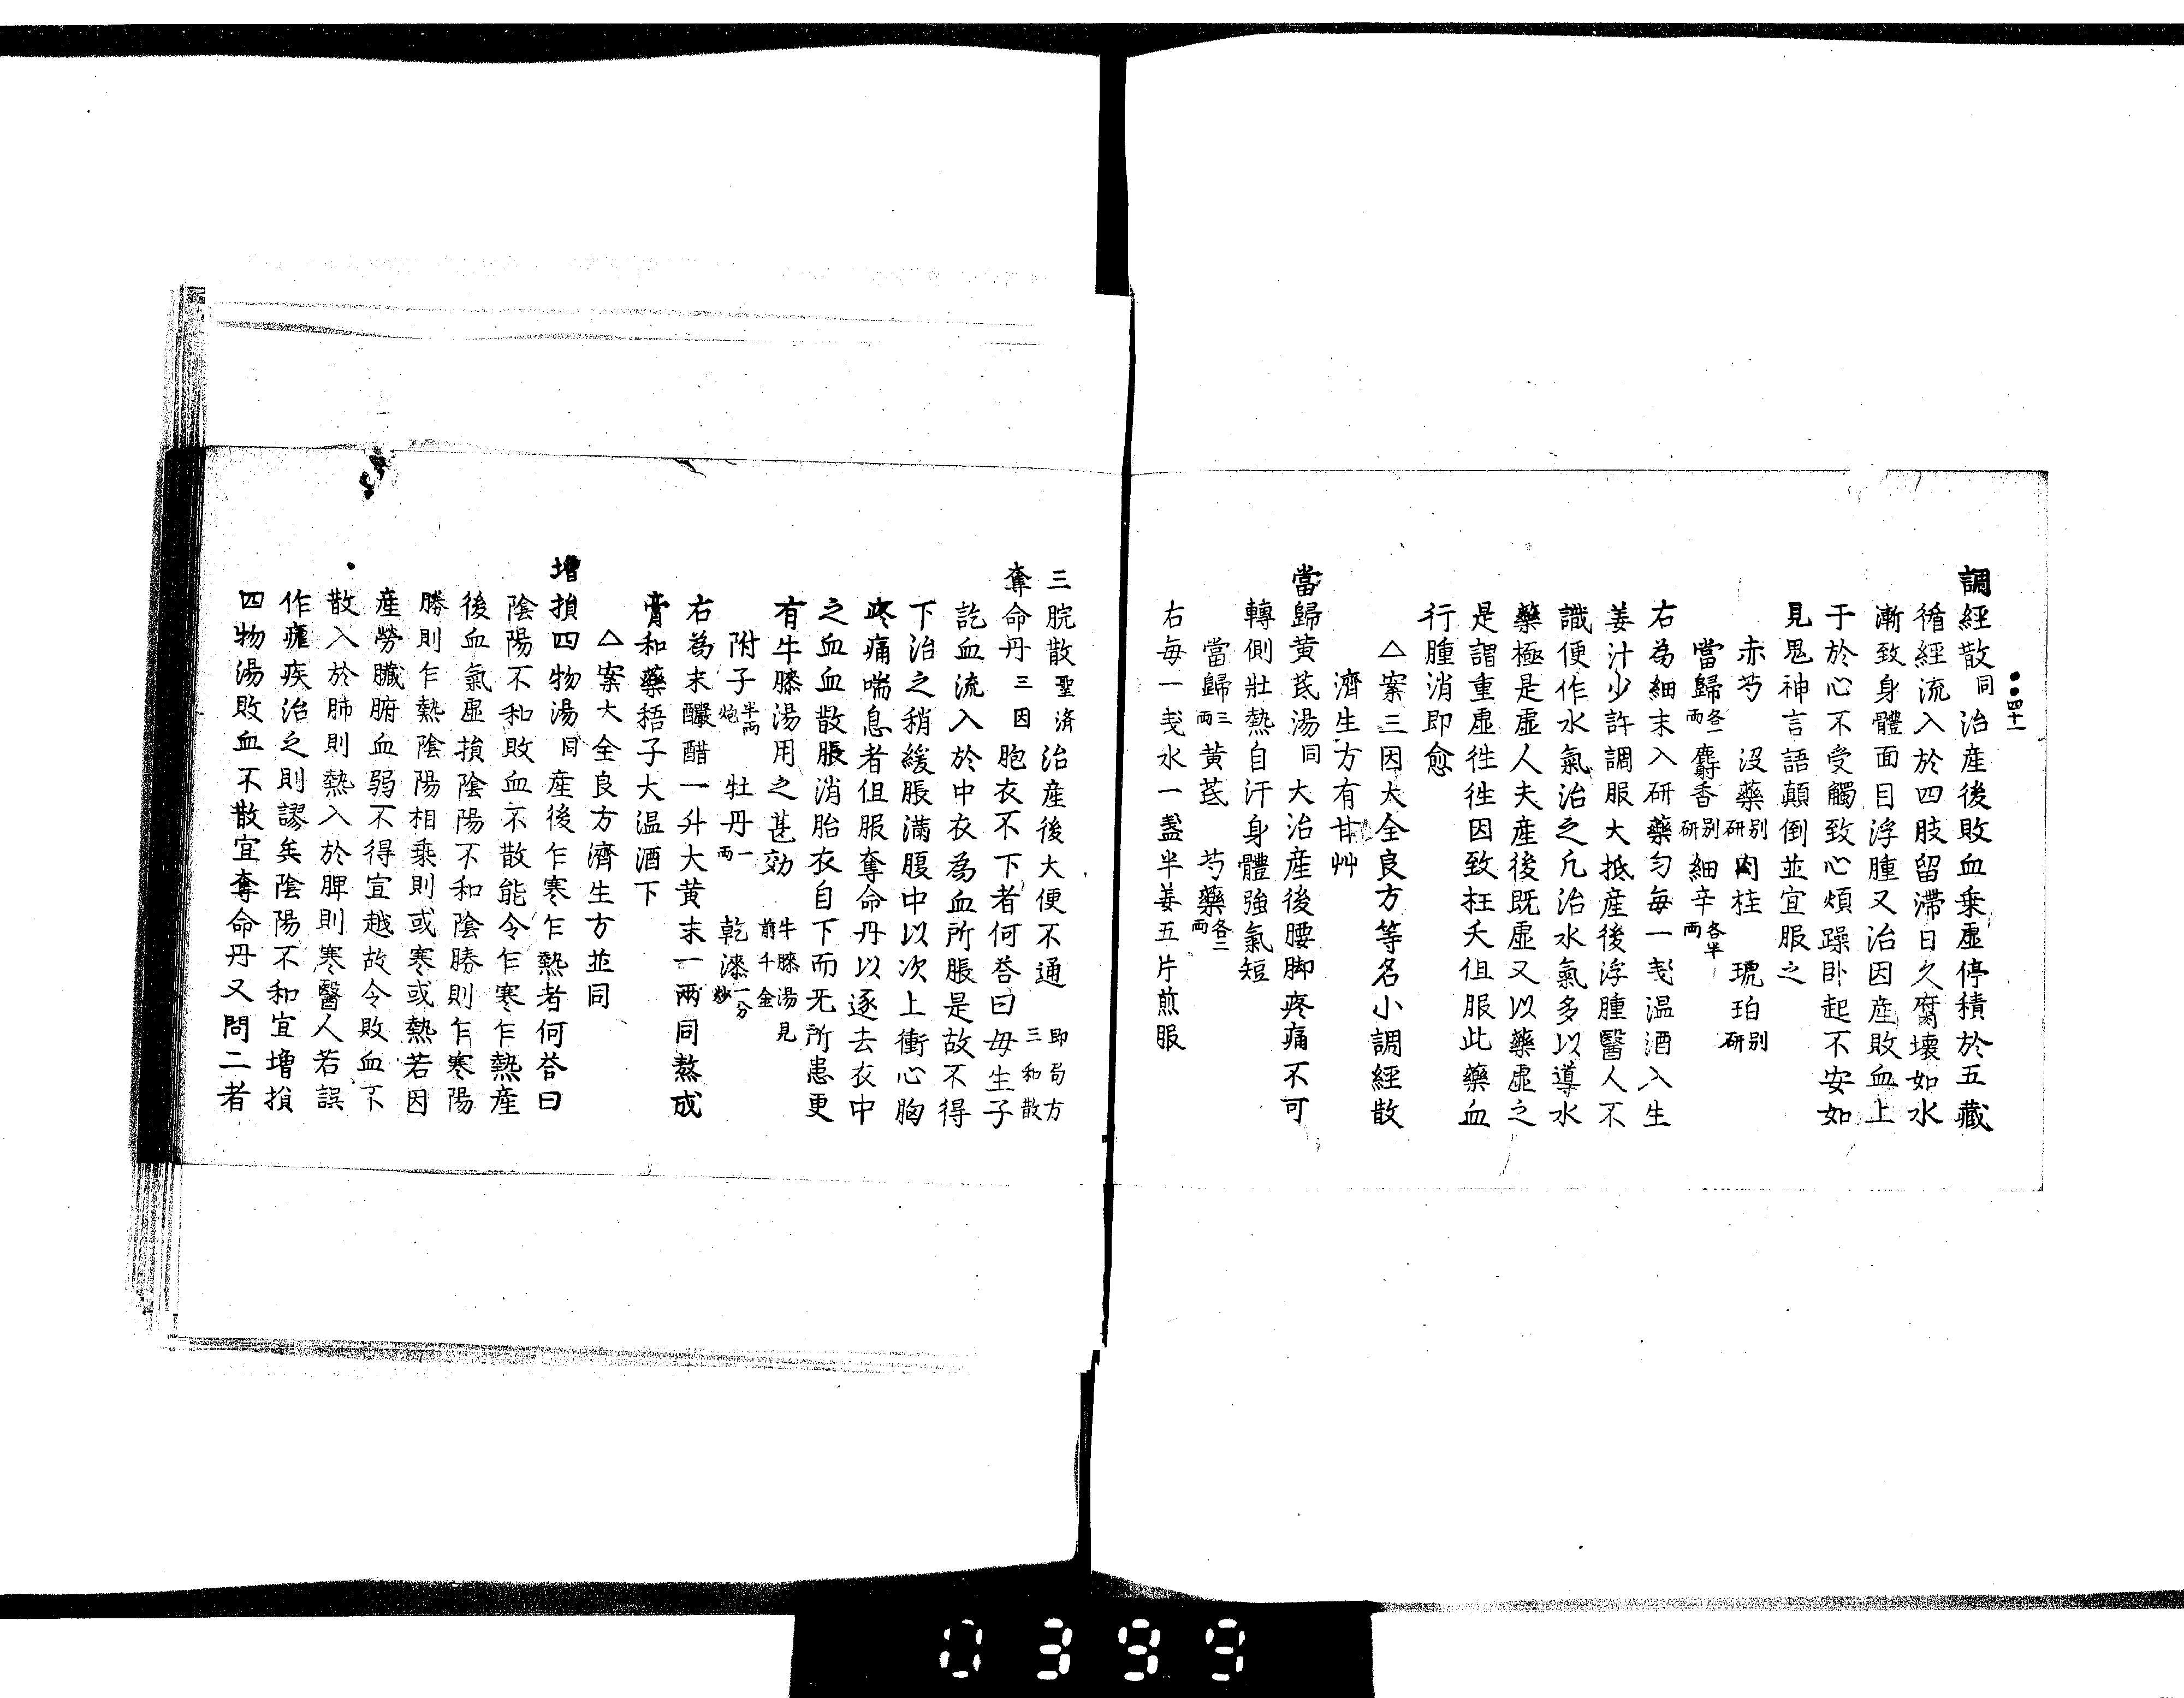 四十一
調経散同治産後敗血乗虚停積於五藏
循経流入於四肢留滯日久腐壊如水
漸致身體面目浮腫又治因産敗血上
于於心不受觸致心煩躁卧起不安如
見鬼神言語顛倒並宜服之
赤芍 没藥別研 肉桂 琥珀別研
當歸各一両 麝香別研 細辛各半両
右為細末入研藥匀毎一戔温酒入生
姜汁少許調服大抵産後浮腫醫人不
識便作水氣治之凢治水氣多以導水
藥極是虚人夫産後既虚又以藥虚之
是謂重虚徃徃因致枉夭伹服此藥血
行腫消即愈
△案三因大全良方等名小調経散
濟生方有甘艸
當歸黄茋湯同大治産後腰脚疼痛不可
轉側壯熱自汗身體強氣短
當歸三両 黄茋 芍藥各二両
右毎一戔水一盞半姜五片煎服
三脘散聖济治産後大便不通 即局方三和散
奪命丹三因胞衣不下者何荅曰毋生子
訖血流入於中衣為血所脹是故不得
下治之稍緩脹滿腹中以次上衝心胸
疼痛喘息者伹服奪命丹以逐去衣中
之血血散脹消胎衣自下而无所患更
有牛膝湯用之甚効 牛膝湯見前千金
附子半両炮 牡丹一両 乾漆一分炒
右為末釅醋一升大黄末一兩同熬成
膏和藥梧子大温酒下
△案大全良方濟生方並同
増損四物湯同産後乍寒乍熱者何荅曰
陰陽不和敗血不散能令乍寒乍熱産
後血氣虚損陰陽不和陰勝則乍寒陽
勝則乍熱陰陽相乗則或寒或熱若因
産勞臓腑血弱不得宣越故令敗血不
散入於肺則熱入於脾則寒醫人若誤
作瘧疾治之則謬矣陰陽不和宜増損
四物湯敗血不散宜奪命丹又問二者
0399